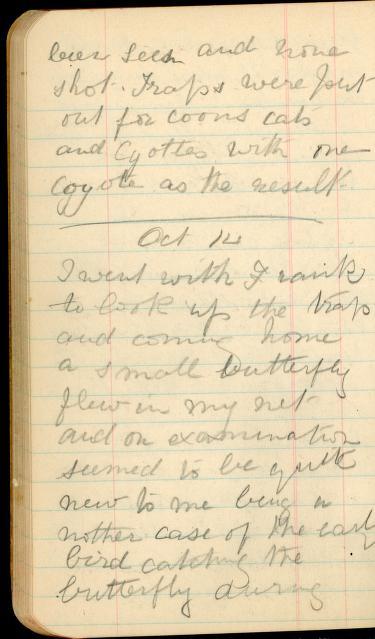 been seen and none
shot. Traps were put
out for coons cats
and Cyottes with one
Coyote as the result.
Oct 14
I went with Frank
to look up the traps
and coming home
a small butterfly
flew in my net
and on examination
seemed to be quite
new to me being a
nother case of the early
bird catching the
butterfly during